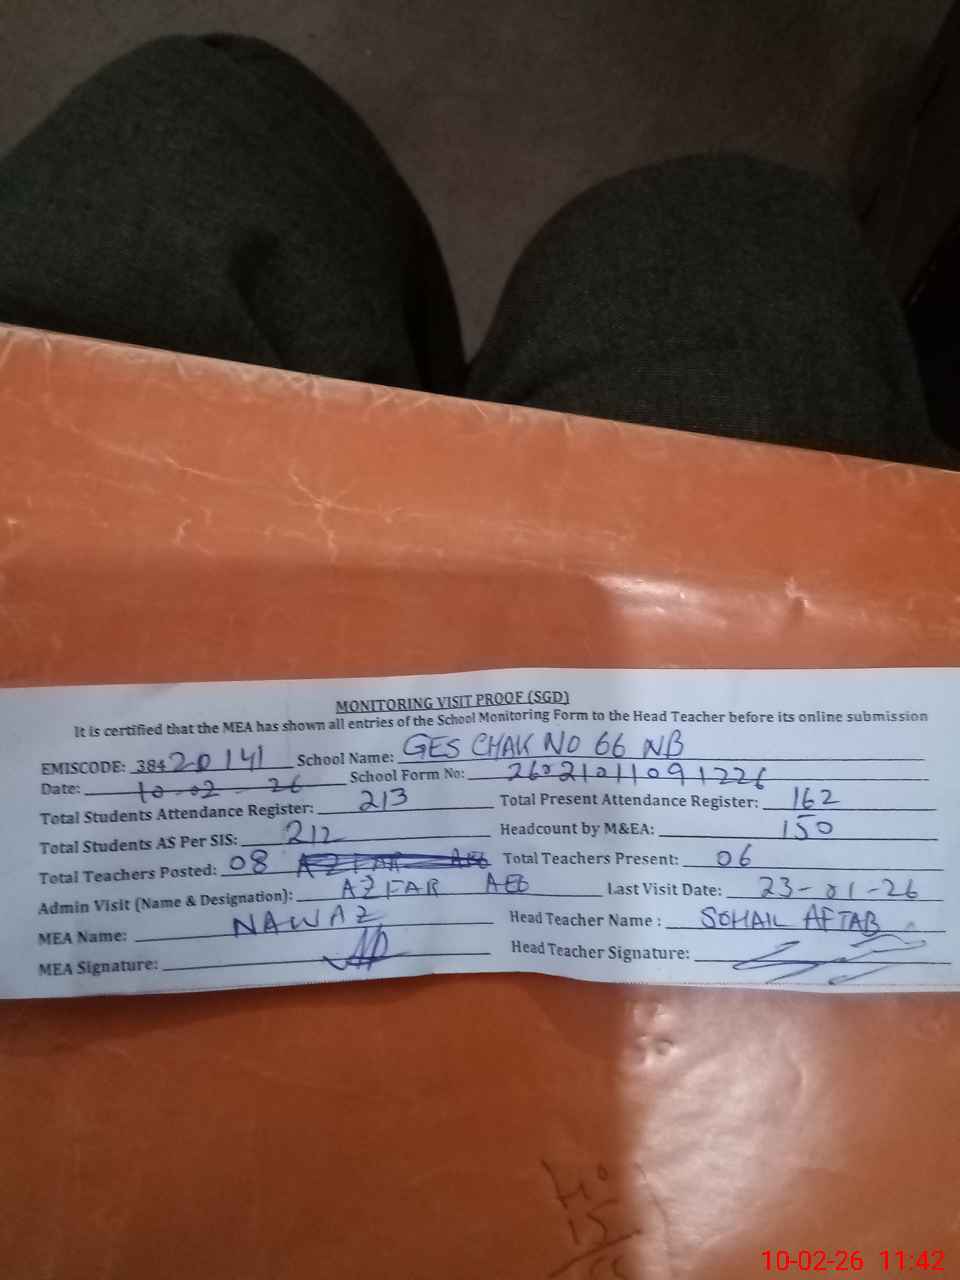 MONITORING VISIT PROOF (SGD)
It is certified that the MEA has shown all entries of the School Monitoring Form to the Head Teacher before its online submission
EMISCODE: 38420141 School Name: GES CHAK NO 66 NB
Date: 10-02-26 School Form No: 2602101109 1226
Total Students Attendance Register: 213 Total Present Attendance Register: 162
Total Students AS Per SIS: 212 Headcount by M&EA: 150
Total Teachers Posted: 08 Total Teachers Present: 06
Admin Visit (Name & Designation): AZFAR AEO Last Visit Date: 23-01-26
MEA Name: NAWAZ Head Teacher Name : SOHAIL AFTAB
MEA Signature: Head Teacher Signature:
10-02-26 11:42